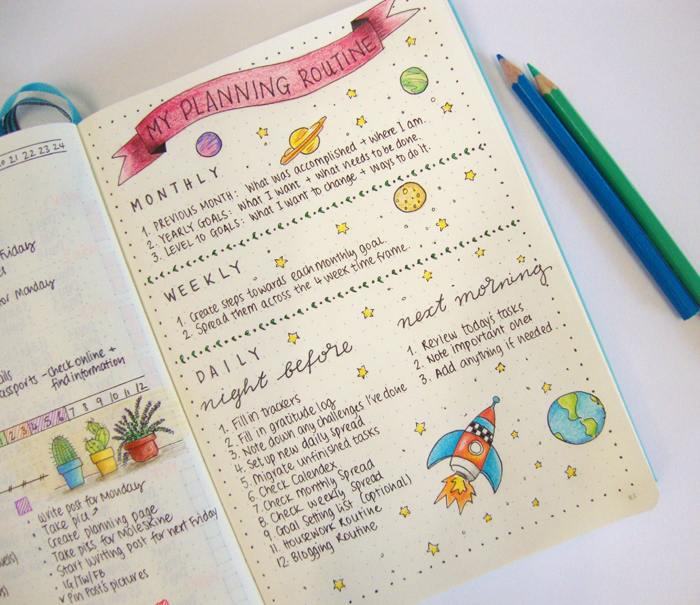 21 22 23 24
Friday
for Monday
- check online +
find information
1 2 3 4 5 6 7 8 9 10 11 12
write post for Monday
Take pics
Create planning page
Take pics for Moleskine
Start writing post for next Friday
IG/TW/FB
Pin Post's pictures
MY PLANNING ROUTINE
MONTHLY
1. PREVIOUS MONTH: what was accomplished + where I am.
2. YEARLY GOALS: what I want + what needs to be done.
3. LEVEL 10 GOALS: what I want to change + ways to do it.
WEEKLY
1. Create steps towards each monthly goal.
2. Spread them across the 4 week time frame.
DAILY
night before
1. Fill in trackers
2. Fill in gratitude log
3. Note down any challenges I've done
4. Set up new daily spread
5. Migrate unfinished tasks
6. Check Calendex
7. Check monthly spread
8. Check weekly spread
9. Goal seting list (optional)
11. Housework Routine
12. Blogging Routine
next morning
1. Review today's tasks
2. Note important ones
3. Add anything if needed.